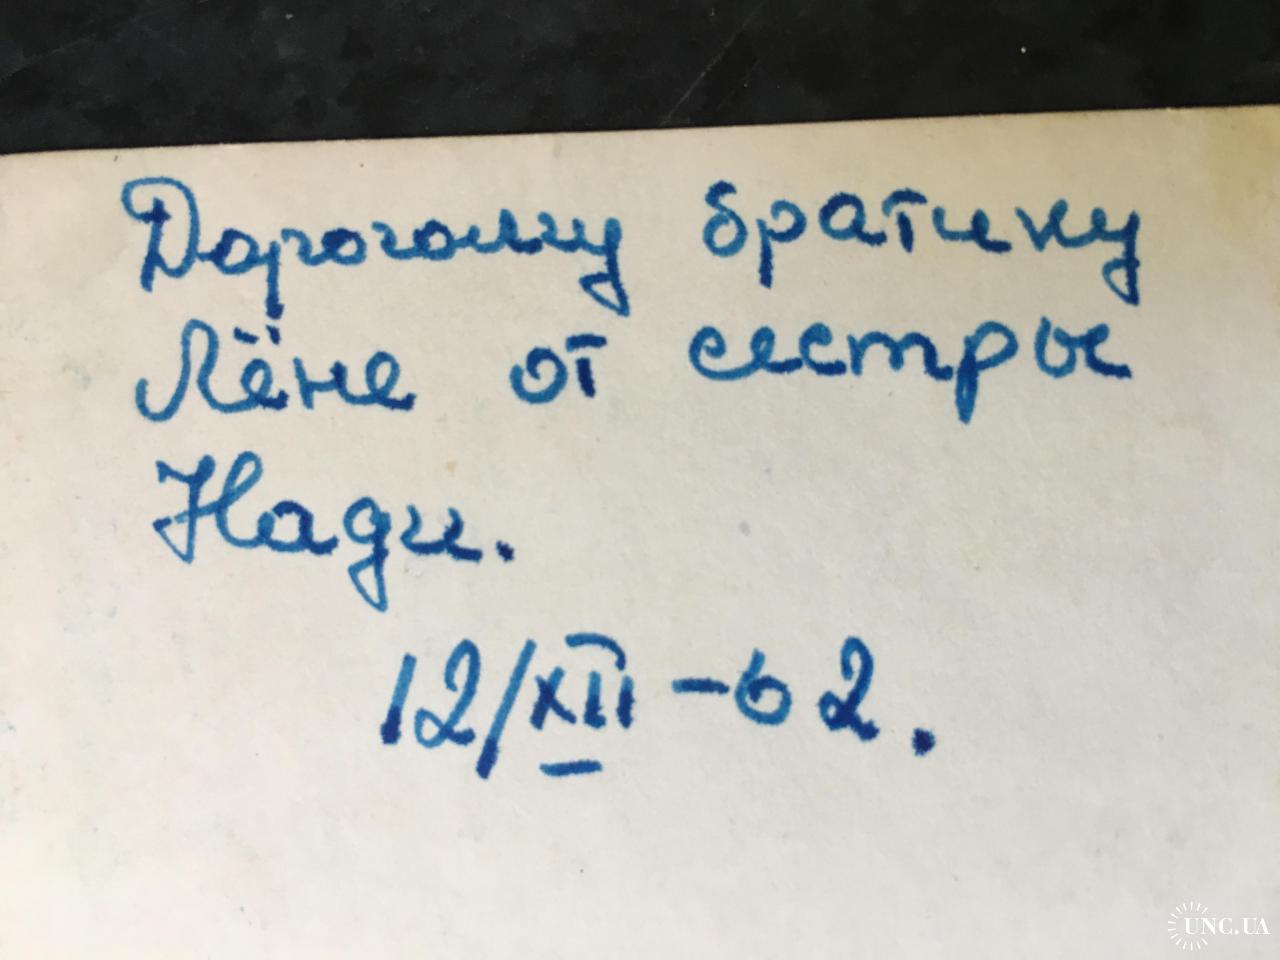 Дорогому братику
Лёне от сестры
Нади.
12/XII-62.
UNC.UA